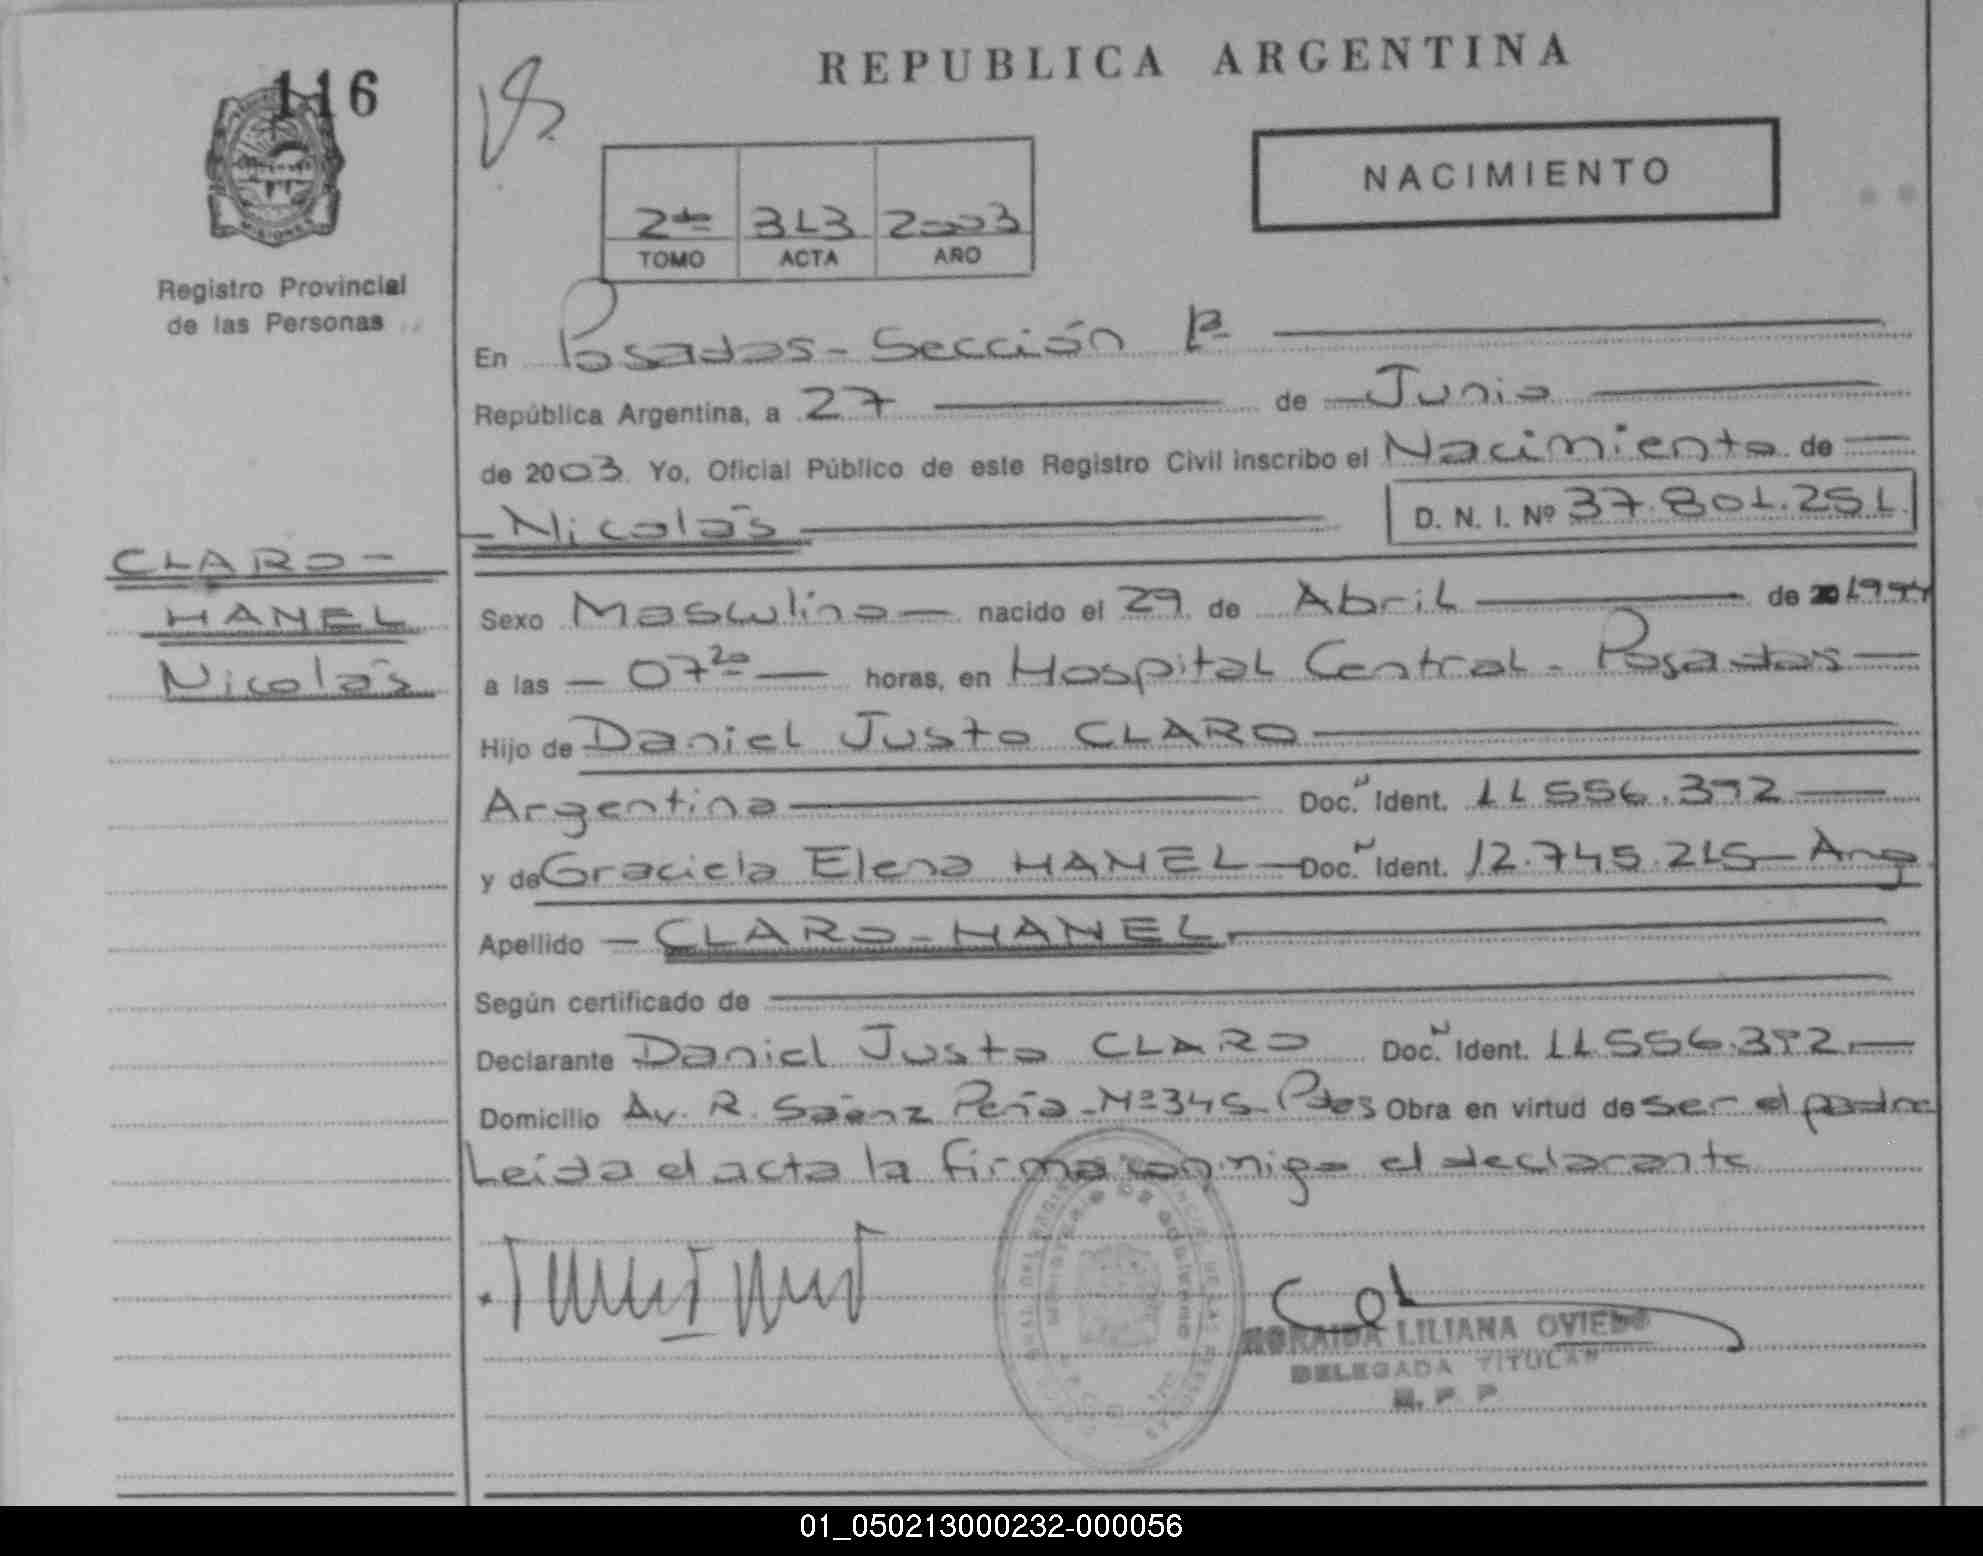 REPUBLICA ARGENTINA
116
MISIONES
Registro Provincial
de las Personas
NACIMIENTO
2do 313 2003
TOMO ACTA AÑO
En Posadas - Sección 1ª
República Argentina, a 27 de Junio
de 2003. Yo, Oficial Público de este Registro Civil inscribo el Nacimiento de
Nicolás D. N. I. Nº 37.801.251.
CLARO -
HANEL
Nicolás
Sexo Masculino nacido el 29 de Abril de 20 1994
a las 07 20 horas, en Hospital Central - Posadas
Hijo de Daniel Justo CLARO
Argentino Doc. N Ident. 11.556.392
y de Graciela Elena HANEL Doc. N Ident. 12.745.215 - Arg.
Apellido CLARO - HANEL
Según certificado de
Declarante Daniel Justo CLARO Doc. N Ident. 11.556.392
Domicilio Av. R. Saenz Peña - Nº 345 - Pdas Obra en virtud de ser el padre
Leída el acta la firma conmigo el declarante
LILIANA OVIEDO
DELEGADA TITULAR
R. P. P.
01_050213000232-000056